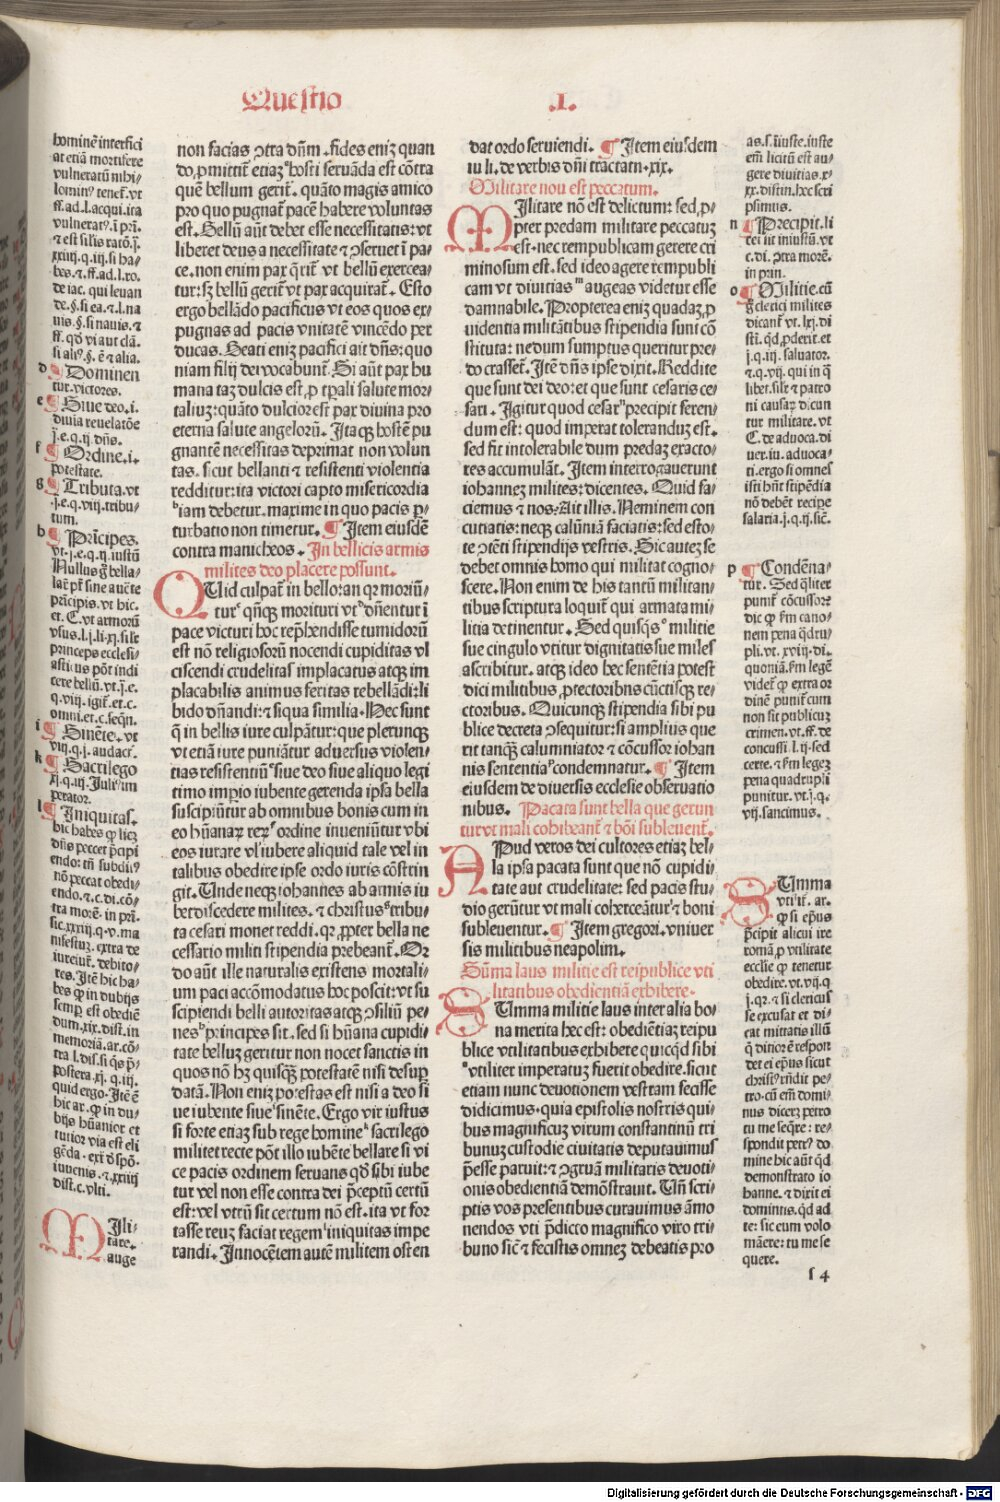 Questio .I.
hominē interfici
at etiā mortifere
vulneratū nihi/
lominꝰ tenet̄. vt
ff. ad. l. acqui. ita
vulneratꝰ. ī pri.
⁊ est silīs ratō. j̄.
xxiij. q. iij. si ha/
bes. ⁊. ff. ad. l. ro.
de iac. qui leuan
de. §. si ea. ⁊. l. na
uis. §. si nauis. ⁊
ff. qd vi aut clā.
si aliꝰ. §. ē ⁊ alia.
d ¶ Dominen
tur. victores.
e ¶ Siue deo. i.
diuīa reuelatōe
j̄. e. q. ij. dn̄s.
f ¶ Ordine. i.
potestate.
g ¶ Tributa. vt
.j. e. q. viij. tribu/
tum.
h ¶ Prīcipes.
vt. j. e. q. ij. iustū
Nullus g̊ bella/
lar̄ pt̄ sine aucte
prīcipis. vt hic.
et. C. vt armorū
vsus. l. j. li. xj. sile
princeps ecclesi/
asticus pōt indi
cere bellū. vt. j̄. e.
q. viij. igit̄. et. c.
omni. et. c. seqn̄.
i ¶ Sinēte. vt
viij. q. j. audacr̄.
k ¶ Sacrilego
xj. q. iij. Juliꝰ im
perator.
l ¶ Iniquitas.
hic habes ꝙ licꝫ
dn̄s peccet p̄cipi
endo: tn̄ subditꝰ
nō peccat obedi/
endo. ⁊. c. di. cō/
tra morē. in pri.
sic. xxxiij. q. v. ma
nifestuꝫ. extra de
iureiur̄. debito/
res. Itē hic ha/
bes ꝙ in dubijs
semꝑ est obediē
dum. xix. dist. in
memoriā. ar. cō/
tra l. dis. si q̄s p̄/
postera. xj. q. iij.
quid ergo. Itē ē
hic ar. ꝙ in du/
bijs hūanior et
tutior via est eli
gēda. exͭ d̄ spō.
iuuenis. ⁊. xxiiij
dist. c. vlti.
MIli/
tare.
auge
non facias ꝯtra dn̄m. fides enīꝫ quan
do ꝓmittit̄ etiaꝫ hosti seruāda est cōtra
quē bellum gerit̄. quāto magis amico
pro quo pugnat̄ pacē habere voluntas
est. Bellū aūt debet esse necessitatis: vt
liberet deus a necessitate ⁊ ꝯseruet ī pa/
ce. non enim pax q̄rit̄ vt bellū exercea/
tur: sꝫ bellū gerit̄ vt pax acquirat̄. Esto
ergo bellādo pacificus vt eos quos ex/
pugnas ad pacis vnitatē vincēdo per
ducas. Beati enīꝫ pacifici ait dn̄s: quo
niam filij dei vocabunt̄. Si aūt pax hu
mana taꝫ dulcis est ꝓ tp̄ali salute mor/
taliuꝫ: quāto dulcior est pax diuina pro
eterna salute angelorū. Itaqꝫ hostē pu
gnantē necessitas deprimat non volun
tas. sicut bellanti ⁊ resistenti violentia
redditur: ita victori capto misericordia
iam debetur. maxime in quo pacis ꝑ/
turbatio non timetur. ¶ Item eiusdē
contra manicheos. In bellicis armis
milites deo placere possunt.
QUid culpat̄ in bello: an qꝛ moriū/
tur qn̄qꝫ morituri vt dn̄entur ī
pace victuri hoc rep̄hendisse tumidorū
est nō religiosorū nocendi cupiditas vl
ciscendi crudelitas implacatus atqꝫ im
placabilis animus feritas rebellādi: li
bido dn̄andi: ⁊ si qua similia. Hec sunt
q̄ in bellis iure culpātur: que plerunqꝫ
vt etiā iure puniātur aduersus violen/
tias resistentiū siue deo siue aliquo legi
timo imp̄io iubente gerenda ipsa bella
suscipiūtur ab omnibus bonis cum in
eo hūanaꝝ reꝝ ordine inueniūtur vbi
eos iurare vl iubere aliquid tale vel in
talibus obedire ipse ordo iuris cōstrin
git. Unde neqꝫ iohānes ab armis iu
bet discedere milites. ⁊ christus tribu/
ta cesari monet reddi. qꝛ ꝓpter bella ne
cessario militi stipendia prebeant̄. Or
do aūt ille naturalis existens mortali/
um paci accōmodatus hoc poscit: vt su
scipiendi belli autoritas atqꝫ ꝯsiliū pe/
nes principes sit. sed si hūana cupidi/
tate belluꝫ geritur non nocet sanctis in
quos nō hꝫ quisqꝫ potestatē nisi desuꝑ
datā. Non enīꝫ potestas est nisi a deo si
ue iubente siue sinēte. Ergo vir iustus
si forte etiaꝫ sub rege homine sacrilego
militet recte pōt illo iubēte bellare si vi
ce pacis ordinem seruans qd̄ sibi iube
tur vel non esse contra dei p̄ceptū certū
est: vel vtrū sit certum nō est. ita vt for
tasse reuꝫ faciat regem iniquitas impe
randi. Innocētem autē militem osten
dat ordo seruiendi. ¶ Item eiusdem
in li. de verbis dn̄i tractatu. xix.
Militare non est peccatum.
MIlitare nō est delictum: sed ꝓ/
pter predam militare peccatuꝫ
est. nec rempublicam gerere cri
minosum est. sed ideo agere rempubli
cam vt diuitias augeas videtur esse
damnabile. Propterea enīꝫ quadaꝫ ꝓ
uidentia militātibus stipendia sunt cō
stituta: ne dum sumptus queritur pre/
do crasset̄. Itē dn̄s ipse dixit. Reddite
que sunt dei deo: et que sunt cesaris ce/
sari. Igitur quod cesar precipit feren/
dum est: quod imperat tolerandūꝫ est.
sed fit intolerabile dum predaꝫ exacto/
res accumulāt. Item interrogauerunt
iohannēꝫ milites: dicentes. Quid fa/
ciemus ⁊ nos: Ait illis. Neminem con
cutiatis: neqꝫ calūniā faciatis: sed esto/
te ꝯtēti stipendijs vestris. Sic auteꝫ se
debet omnis homo qui militat cogno/
scere. Non enim de his tantū militan/
tibus scriptura loquit̄ qui armata mi/
litia detinentur. Sed quisqꝫ militie
sue cingulo vtitur dignitatis sue miles
ascribitur. atqꝫ ideo hec sentētia potest
dici militibus ꝓtectoribus cūctisqꝫ re/
ctoribus. Quicunqꝫ stipendia sibi pu
blice decreta ꝯsequitur: si amplius que
rit tanqꝫ calumniator ⁊ cōcussor iohan
nis sententia condemnatur. ¶ Item
eiusdem de diuersis ecclesie obseruatio
nibus. Pacata sunt bella que gerun
tur vt mali cohibeant̄ ⁊ bōi subleuent̄.
APud veros dei cultores etiaꝫ bel/
la ipsa pacata sunt que nō cupidi/
tate aut crudelitate: sed pacis stu/
dio gerūtur vt mali coherceātur ⁊ boni
subleuentur. ¶ Item gregori. vniuer
sis militibus neapolim.
Sūma laus militie est reipublice vti
litatibus obedientiā exhibere.
SUmma militie laus inter alia bo/
na merita hec est: obediētiaꝫ reipu
blice vtilitatibus exhibere quicqd sibi
vtiliter imperatuꝫ fuerit obedire. sicut
etiam nunc deuotionem vestram fecisse
didicimus. quia epistolis nostris qui/
bus magnificuꝫ virum constantinū tri
bunuꝫ custodie ciuitatis deputauimus
p̄esse paruit: ⁊ ꝯgruā militaris deuoti/
onis obedientiā demōstrauit. Un̄ scri/
ptis vos presentibus curauimus āmo
nendos vti p̄dicto magnifico viro tri/
buno sic̄ ⁊ fecistis omneꝫ debeatis pro
as. s. iiuste. iuste
em̄ licitū est au/
gere diuitias. x/
xx. distin. hec scri
psimus.
n ¶ Precipit. li
cet sit iniustū. vt
c. di. ꝯtra morē.
in prin.
o ¶ Militie. cū
g̊ clerici milites
dicant̄ vt. lxj. di
sti. qd̄ ꝓderit. et
j. q. iij. saluator.
⁊. q. vij. qui in q̄
libet. silr̄ ⁊ patro
ni causaꝝ dicun
tur militare. vt
C. de aduoca. di
uer. iu. aduoca/
ti. ergo si omnes
isti hn̄t stipēdia
nō debēt recipe
salaria. j. q. ij. sic̄.
p ¶ Condēna/
tur. Sed qͣliter
punit̄ cōcussor:
dic ꝙ km̄ cano/
nem pena q̄dru/
pli. vt. xviij. di.
quoniā. km̄ legē
videt̄ ꝙ extra or
dinē punit̄ cum
non sit publicuꝫ
crimen. vt. ff. de
concussi. l. ij. sed
certe. ⁊ km̄ legeꝫ
pena quadrupli
punitur. vt. j. q.
vij. sancimus.
SUmma
vti if. ar.
ꝙ si ep̄us
p̄cipit alicui ire
romā ꝓ vtilitate
ecclīe ꝙ tenetur
obedire. vt. vij. q
j. qꝛ. ⁊ si clericus
se excusat et di/
cat mittatis illū
q̄ ditior ē respon
det ei ep̄us sicut
christꝰ rn̄dit pe/
tro. cū em̄ domi/
nus dicerꝫ petro
tu me seq̄re: re/
spondit petrꝰ do
mine hic aūt qd
demonstrato io
hanne. ⁊ dixit ei
dominus. qd ad
te: sic eum volo
manēre: tu me se
quere.
s 4
Digitalisierung gefördert durch die Deutsche Forschungsgemeinschaft - DFG